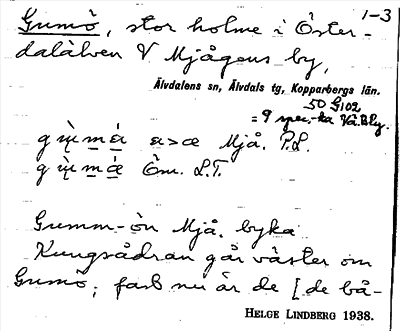 Gumö, stor holme i Öster- 1-3
dalälven V Mjågens by,
Älvdalens sn, Älvdals tg, Kopparbergs län.
50 G102
= 9 spec.-ka Vå.Bly.
Mjå. P.L.
Öm. L.T.
Gumm-ön Mjå. byka
Kungsådran går väster om
Gumö; fast nu är de [de bå-
HELGE LINDBERG 1938.